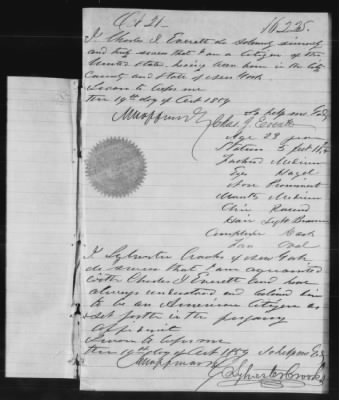 Oct 21 1622
I Charles J. Everett do solemnly sincerely
and truly swear that I am a citizen of the
United States having been born in the City
County and State of New York
Sworn to before me
this 19th day of Oct 1859
So help me God
Chas J. Everett
Age 23 years
Stature 5 feet
Forehead Medium
Eyes Hazel
Nose Prominent
Mouth Medium
Chin Round
Hair Light Brown
Complexion
Face Oval
I Sylvester Crooks of New York
do swear that I am acquainted
with Charles J Everett and have
always understood and believed him
to be an American Citizen as
set forth in the foregoing
affidavit
Sworn to before me
this 19th day of Oct 1859 So help me God
Sylvester Crooks